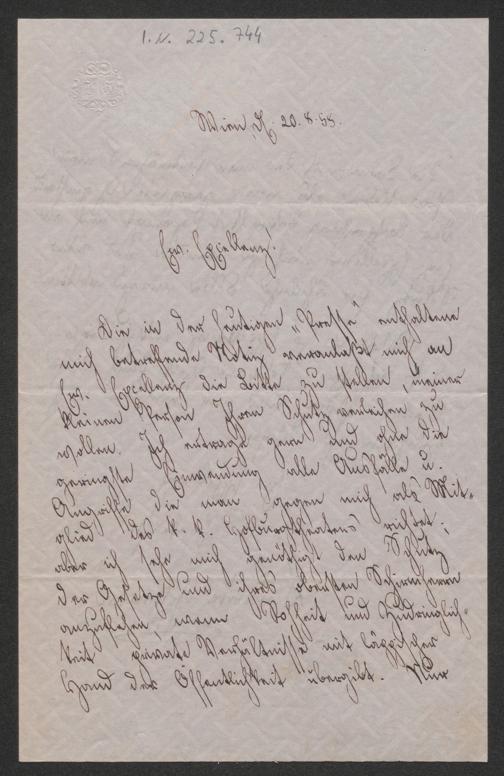 I.N. 225.744
Wien, d. 20.8.58.
Ew. Excellenz!
Die in der heutigen „Presse“ enthaltene
mich betreffende Notiz veranlaßt mich an
Ew. Excellenz die Bitte zu stellen, meiner
kleinen Person Ihren Schutz verleihen zu
wollen. Ich ertrage gern und ohne die
geringste Einwendung alle Ausfälle u.
Angriffe die man gegen mich als Mit-
glied des k. k. Hofburgtheaters richtet;
aber ich sehe mich genöthigt den Schutz
der Gesetze und ihres obersten Schirmherrn
anzuflehen, wenn Rohheit und Zudringlich-
keit private Verhältnisse mit täppischer
Hand der Öffentlichkeit übergibt. Nur